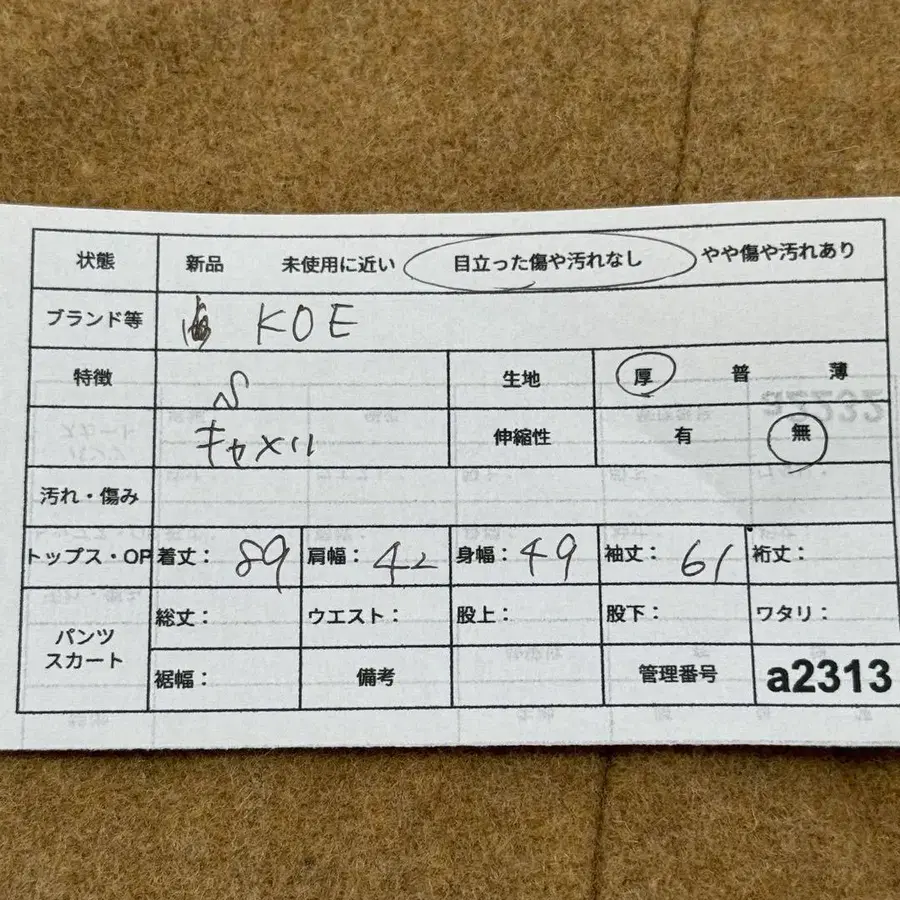 状態 新品 未使用に近い 目立った傷や汚れなし やや傷や汚れあり
ブランド等 KOE
特徴 S 生地 厚 普 薄
キャメル 伸縮性 有 無
汚れ・傷み
トップス・OP 着丈： 89 肩幅： 42 身幅： 49 袖丈： 61 裄丈：
パンツ スカート 総丈： ウエスト： 股上： 股下： ワタリ：
裾幅： 備考 管理番号 a2313